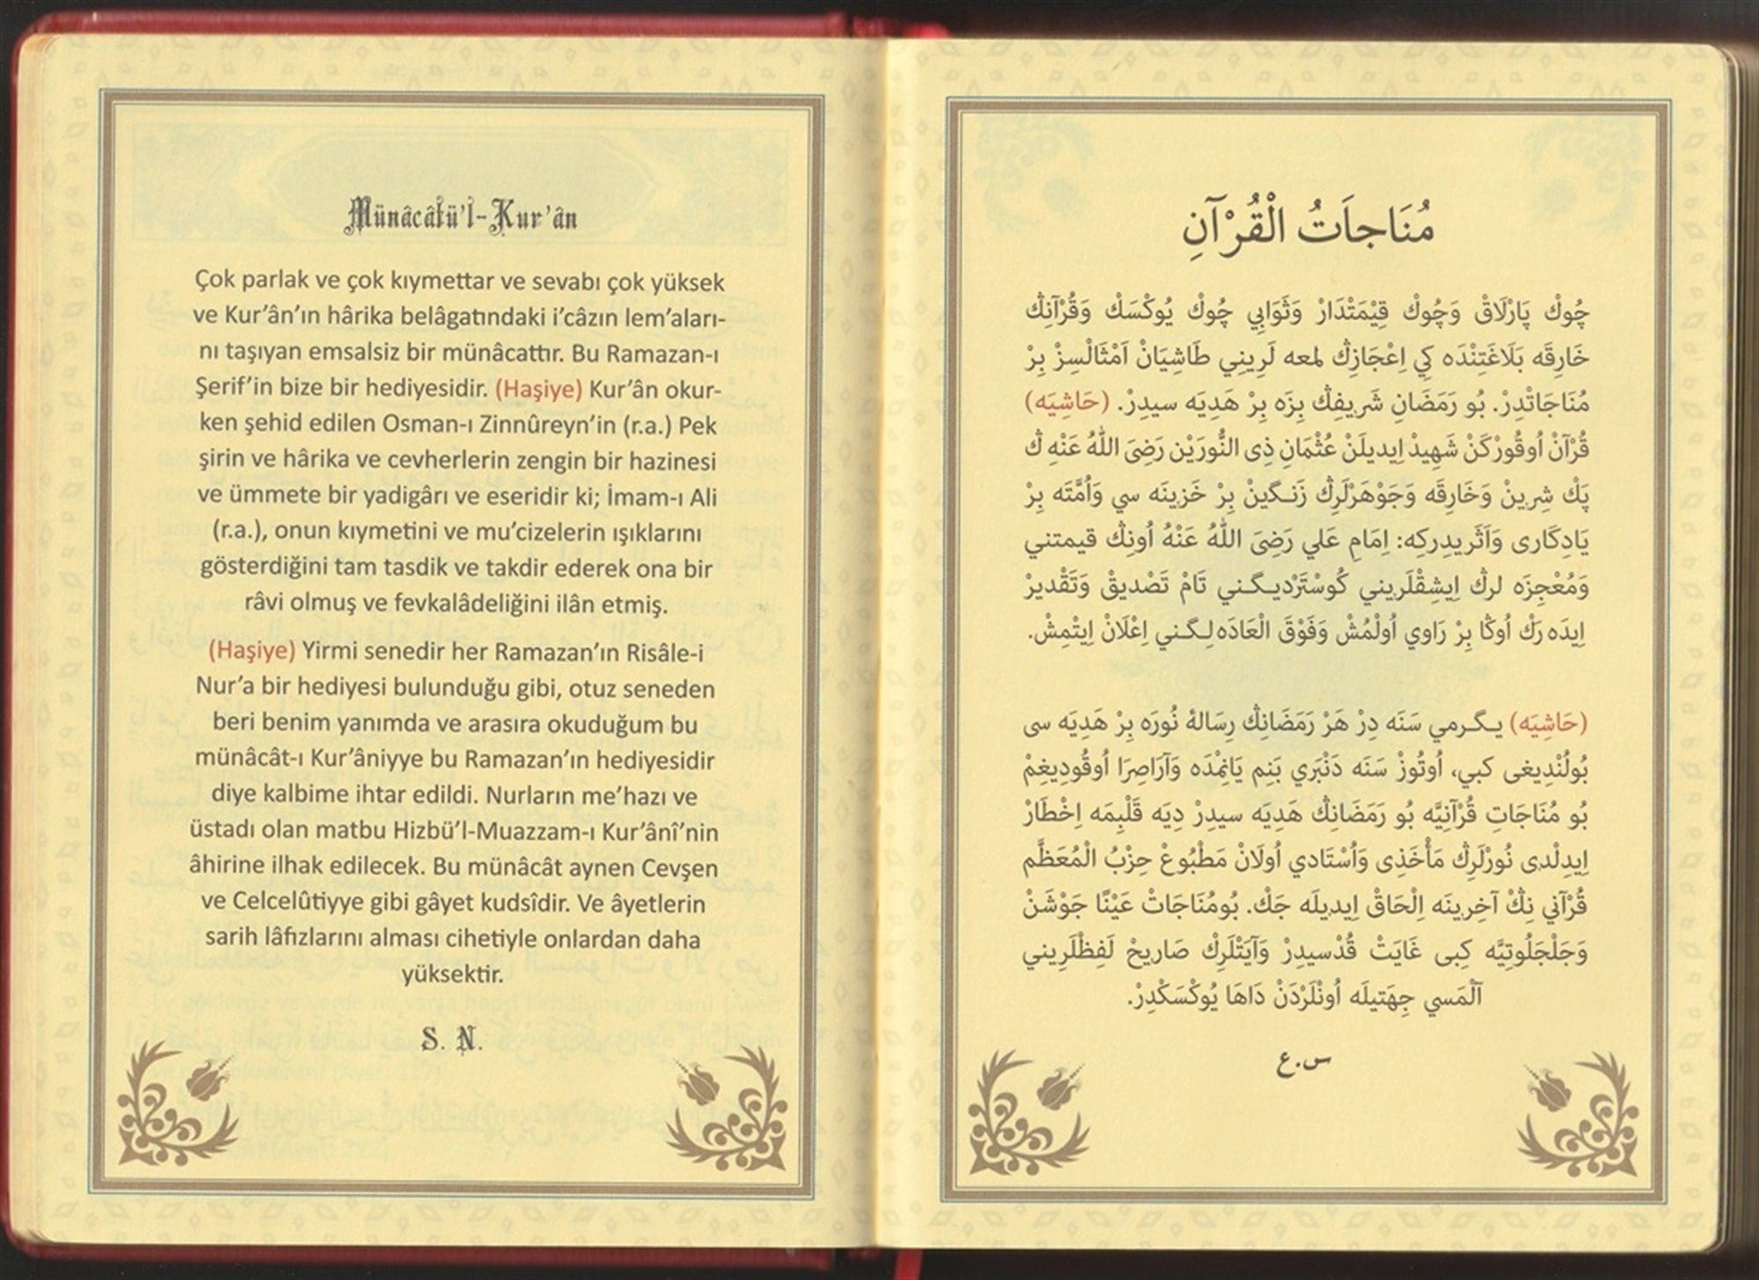 Münâcâtü'l-Kur'ân
Çok parlak ve çok kıymettar ve sevabı çok yüksek
ve Kur'ân'ın hârika belâgatındaki i'câzın lem'aları-
nı taşıyan emsalsiz bir münâcattır. Bu Ramazan-ı
Şerif'in bize bir hediyesidir. (Haşiye) Kur'ân okur-
ken şehid edilen Osman-ı Zinnûreyn'in (r.a.) Pek
şirin ve hârika ve cevherlerin zengin bir hazinesi
ve ümmete bir yadigârı ve eseridir ki; İmam-ı Ali
(r.a.), onun kıymetini ve mu'cizelerin ışıklarını
gösterdiğini tam tasdik ve takdir ederek ona bir
râvi olmuş ve fevkalâdeliğini ilân etmiş.
(Haşiye) Yirmi senedir her Ramazan'ın Risâle-i
Nur'a bir hediyesi bulunduğu gibi, otuz seneden
beri benim yanımda ve arasıra okuduğum bu
münâcât-ı Kur'âniyye bu Ramazan'ın hediyesidir
diye kalbime ihtar edildi. Nurların me'hazı ve
üstadı olan matbu Hizbü'l-Muazzam-ı Kur'ânî'nin
âhirine ilhak edilecek. Bu münâcât aynen Cevşen
ve Celcelûtiyye gibi gâyet kudsîdir. Ve âyetlerin
sarih lâfızlarını alması cihetiyle onlardan daha
yüksektir.
S. N.
مُنَاجاَتُ الْقُرْآنِ
چُوكْ پَارْلَاقْ وَچُوكْ قِيْمَتْدَارْ وَثَوَابِي چُوكْ يُوكْسَكْ وَقُرْآنِڭْ
خَارِقَه بَلَاغَتِنْدَه كِي اِعْجَازِڭْ لمعه لَرِيني طَاشِيَانْ اَمْثَالْسِزْ بِرْ
مُنَاجَاتْدِرْ. بُو رَمَضَانِ شَرِيفِڭْ بِزَه بِرْ هَدِيَه سيدِرْ. (حَاشِيَه)
قُرْآنْ اُوقُورْكَنْ شَهِيدْ اِيدِيلَنْ عُثْمَانِ ذِى النُّورَيْن رَضِىَ اللّٰهُ عَنْهِ ڭ
پَكْ شِرِينْ وَخَارِقَه وَجَوْهَرْلَرِڭْ زَنـگينْ بِرْ خَزِينَه سي وَاُمَّتَه بِرْ
يَادِكَارى وَاَثَرِيدِركِه: اِمَامِ عَلي رَضِىَ اللّٰهُ عَنْهُ اُونِڭْ قيمتني
وَمُعْجِزَه لرِڭْ اِيشِقْلَرِيني كُوسْتَرْديـگـني تَامْ تَصْدِيقْ وَتَقْدِيرْ
اِيدَه رَكْ اُوڭا بِرْ رَاوِي اُولْمُشْ وَفَوْقَ الْعَادَه لـِگـني اِعْلَانْ اِيتْمِشْ.
(حَاشِيَه) يـگـرمي سَنَه دِرْ هَرْ رَمَضَانِڭْ رِسَالهٔ نُورَه بِرْ هَدِيَه سى
بُولُنْدِيغى كبي، اُوتُوزْ سَنَه دَنْبَرِي بَنِم يَانِمْدَه وَآرَاصِرَا اُوقُودِيغِمْ
بُو مُنَاجَاتِ قُرْآنِيَّه بُو رَمَضَانِڭْ هَدِيَه سيدِرْ دِيَه قَلْبِمَه اِخْطَارْ
اِيدِلْدِى نُورْلَرِڭْ مَأْخَذِى وَاُسْتَادي اُولَانْ مَطْبُوعْ حِزْبُ الْمُعَظَّمِ
قُرْآني نِڭْ آخِرِينَه اِلْحَاقْ اِيدِيلَه جَكْ. بُومُنَاجَاتْ عَيْنًا جَوْشَنْ
وَجَلْجَلُوتِيَّه كِبى غَايَتْ قُدْسيدِرْ وَآيَتْلَرِڭْ صَارِيحْ لَفِظْلَرِيني
آلْمَسي جِهَتيلَه اُونْلَرْدَنْ دَاهَا يُوكْسَكْدِرْ.
س.ع